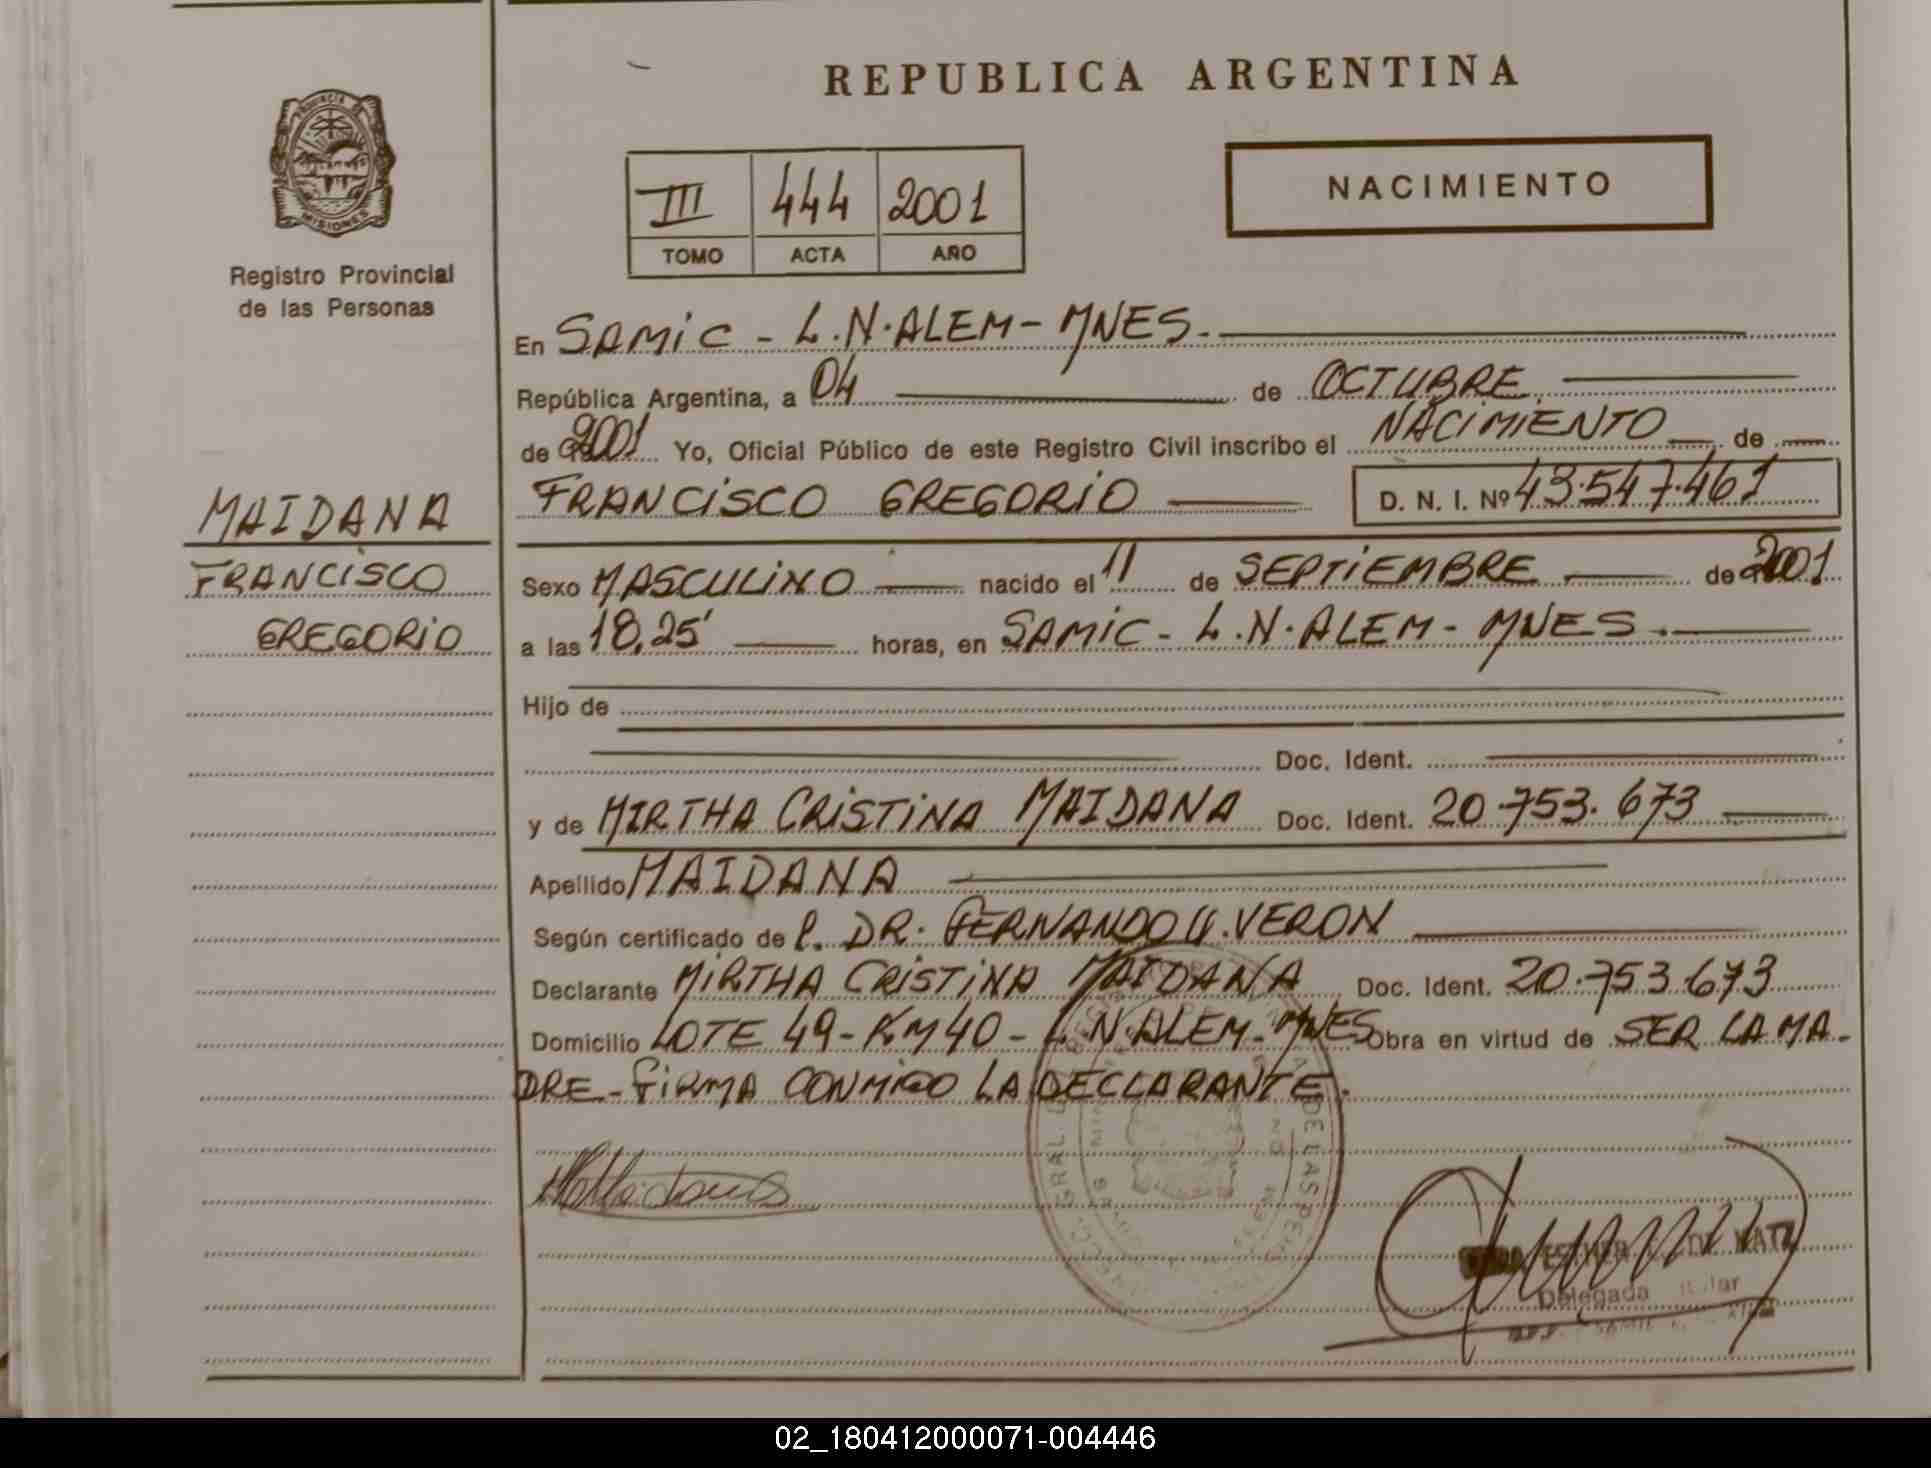 REPUBLICA ARGENTINA
PROVINCIA DE
MISIONES
Registro Provincial
de las Personas
III 444 2001
TOMO ACTA AÑO
NACIMIENTO
En SAMIC - L.N.ALEM - MNES.
República Argentina, a 04 de OCTUBRE
de 2001 Yo, Oficial Público de este Registro Civil inscribo el NACIMIENTO de
FRANCISCO GREGORIO D. N. I. Nº 43.547.461
MAIDANA
FRANCISCO
GREGORIO
Sexo MASCULINO nacido el 11 de SEPTIEMBRE de 2001
a las 18,25' horas, en SAMIC - L.N.ALEM - MNES.
Hijo de
Doc. Ident.
y de MIRTHA CRISTINA MAIDANA Doc. Ident. 20.753.673
Apellido MAIDANA
Según certificado de DR. FERNANDO VERON
Declarante MIRTHA CRISTINA MAIDANA Doc. Ident. 20.753.673
Domicilio LOTE 49 - KM 40 - L.N.ALEM - MNES Obra en virtud de SER LA MA-
DRE - FIRMA CONMIGO LA DECLARANTE.
DE LAS
Delegada
02_180412000071-004446